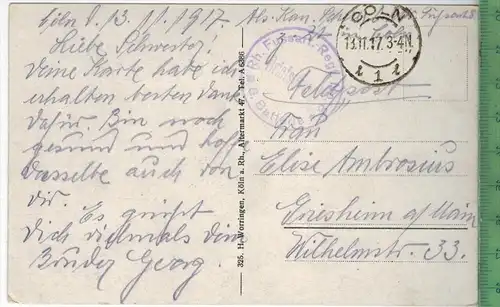 Cöln d. 13.11.1917.
Liebe Schwester!
Deine Karte habe ich
erhalten besten Dank
dafür. Bin noch
gesund und hoffe
dasselbe auch von
dir.
Es grüßt
Dich vielmals dein
Bruder Georg.
326. H. Worringen, Köln a. Rh., Altermarkt 47, Tel. A 6386
CÖLN
13.11.17. 3-4N.
1
Feldpost
Frau
Elise Ambrosius
Griesheim a/Main
Wilhelmstr. 33.